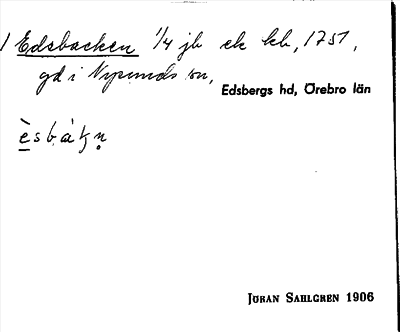 1 Edsbacken 1/4 jb ek kb, 1751,
gd i Nysunds sn,
Edsbergs hd, Örebro län
è s b à ꞣ n̥
JÖRAN SAHLGREN 1906